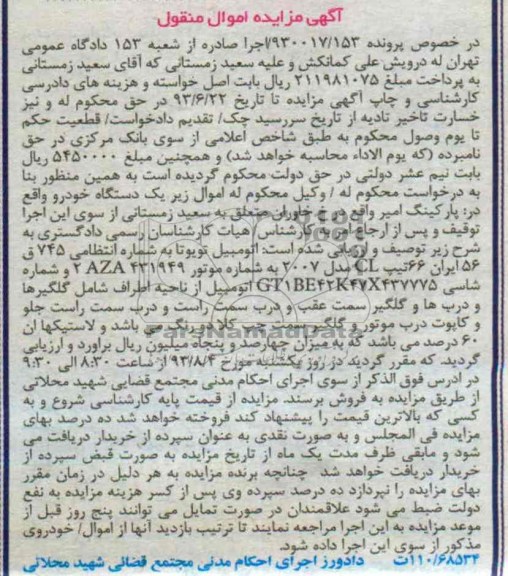 آگهی مزایده اموال منقول
در خصوص پرونده ۹۳۰۰۱۷/۱۵۳/اجرا صادره از شعبه ۱۵۳ دادگاه عمومی
تهران له درویش علی کمانکش و علیه سعید زمستانی که آقای سعید زمستانی
به پرداخت مبلغ ۲۱۱۹۸۱۰۷۵ ریال بابت اصل خواسته و هزینه های دادرسی
کارشناسی و چاپ آگهی مزایده تا تاریخ ۹۳/۶/۲۲ در حق محکوم له و نیز
خسارت تاخیر تادیه از تاریخ سررسید چک/ تقدیم دادخواست/ قطعیت حکم
تا یوم وصول محکوم به طبق شاخص اعلامی از سوی بانک مرکزی در حق
نامبرده (که یوم الاداء محاسبه خواهد شد) و همچنین مبلغ ۵۴۵۰۰۰۰ ریال
بابت نیم عشر دولتی در حق دولت محکوم گردیده است به همین منظور بنا
به درخواست محکوم له / وکیل محکوم له اموال زیر یک دستگاه خودرو واقع
در: پارکینگ امیر واقع در خ خاوران متعلق به سعید زمستانی از سوی این اجرا
توقیف و پس از ارجاع امر به کارشناس / هیات کارشناسان رسمی دادگستری به
شرح زیر توصیف و ارزیابی شده است: اتومبیل تویوتا به شماره انتظامی ۷۴۵ ق
۵۶ ایران ۶۶ تیپ CL مدل ۲۰۰۷ به شماره موتور ۴۳۱۹۴۹ 2 AZA و شماره
شاسی GT1BE42K47X437775 اتومبیل از ناحیه اطراف شامل گلگیرها
و درب ها و گلگیر سمت عقب و درب سمت راست و درب سمت راست جلو
و کاپوت درب موتور و گلگیر سمت چپ کلا دو رنگ می باشد و لاستیکها ان
۶۰ درصد می باشد که به میزان چهارصد و پنجاه میلیون ریال براورد و ارزیابی
گردید. که مقرر گردید در روز یکشنبه مورخ ۹۳/۸/۴ از ساعت ۸:۳۰ الی ۹:۳۰
در ادرس فوق الذکر از سوی اجرای احکام مدنی مجتمع قضایی شهید محلاتی
از طریق مزایده به فروش برسند. مزایده از قیمت پایه کارشناسی شروع و به
کسی که بالاترین قیمت را پیشنهاد کند فروخته خواهد شد ده درصد بهای
مزایده فی المجلس و به صورت نقدی به عنوان سپرده از خریدار دریافت می
شود و مابقی ظرف مدت یک ماه از تاریخ مزایده به صورت قبض سپرده از
خریدار دریافت خواهد شد چنانچه برنده مزایده به هر دلیل در زمان مقرر
بهای مزایده را نپردازد ده درصد سپرده وی پس از کسر هزینه مزایده به نفع
دولت ضبط می شود علاقمندان در صورت تمایل می توانند پنج روز قبل از
موعد مزایده به این اجرا مراجعه نمایند تا ترتیب بازدید آنها از اموال/ خودروی
مذکور از سوی این اجرا داده شود.
۱۱۰/۶۸۵۳۴ت دادورز اجرای احکام مدنی مجتمع قضائی شهید محلاتی